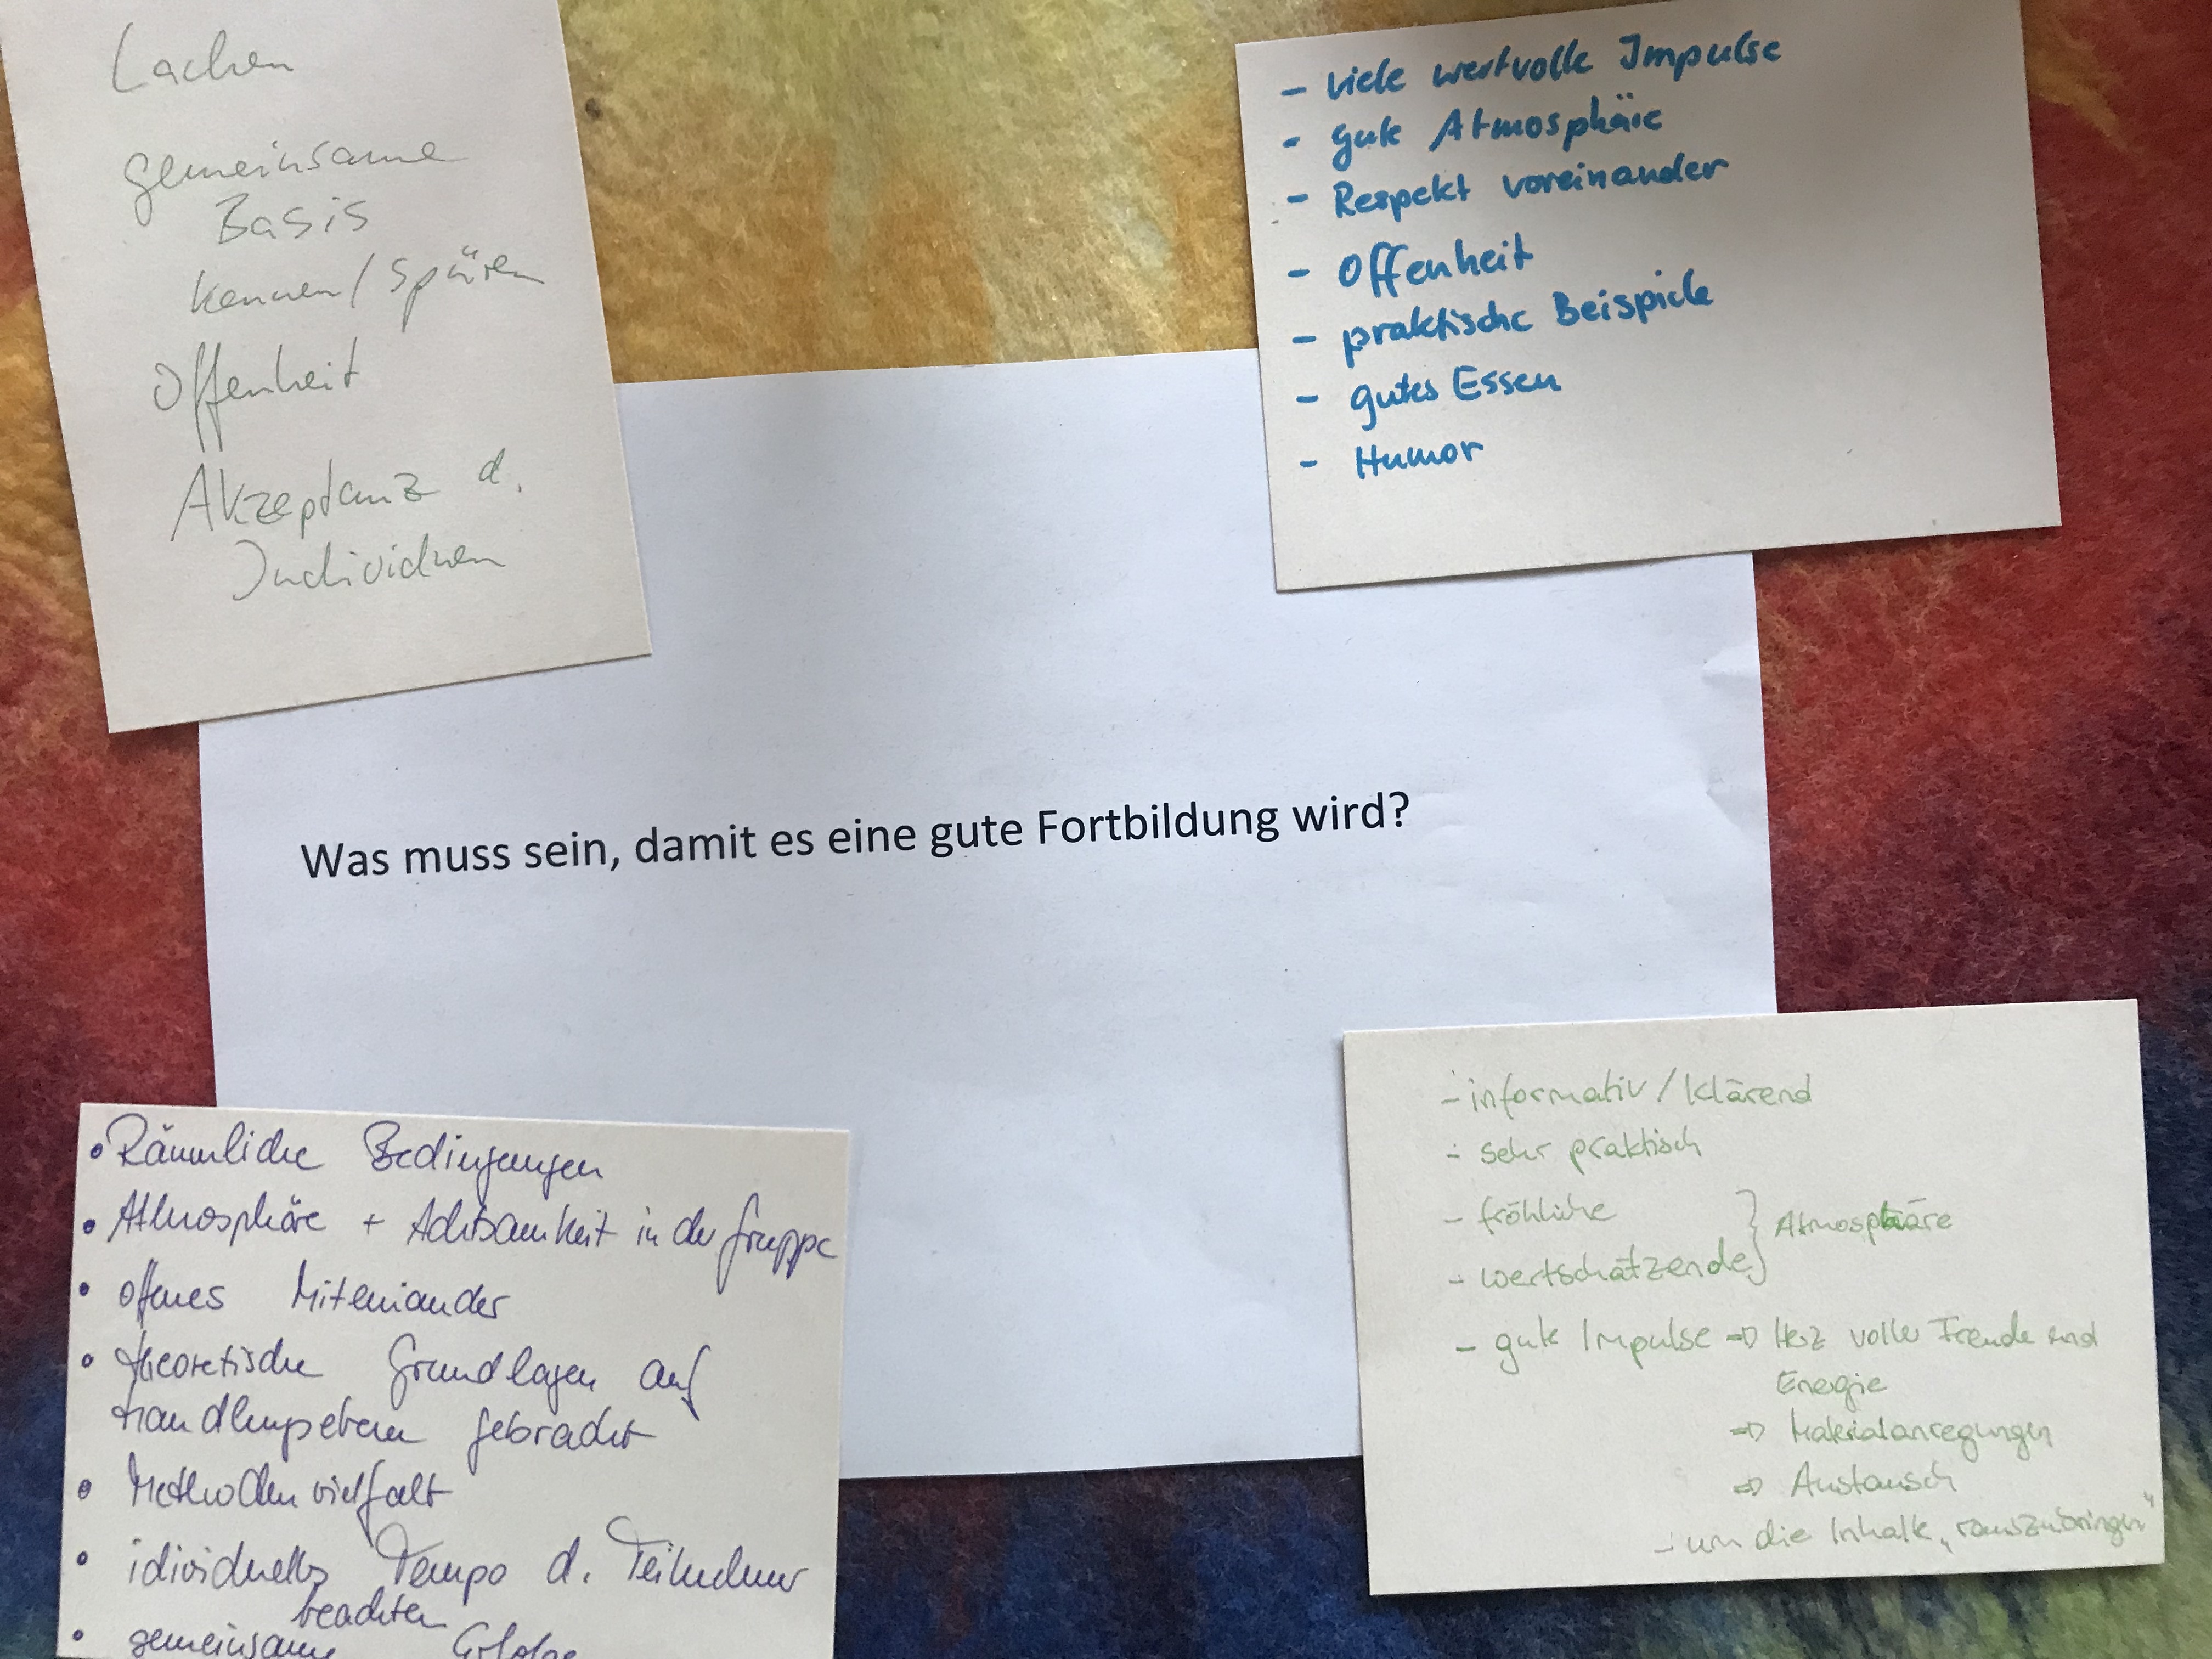 Lachen
gemeinsame
Basis
kennen/spüren
Offenheit
Akzeptanz d.
Individuen
- viele wertvolle Impulse
- gute Atmosphäre
- Respekt voreinander
- Offenheit
- praktische Beispiele
- gutes Essen
- Humor
Was muss sein, damit es eine gute Fortbildung wird?
• Räumliche Bedingungen
• Atmosphäre + Achtsamkeit in der Gruppe
• offenes Miteinander
• theoretische Grundlagen auf
Handlungsebene gebracht
• Methodenvielfalt
• idividuelles Tempo d. Teilnehmer
beachten
• gemeinsame Erfolge
- informativ/klärend
- sehr praktisch
- fröhliche
- wertschätzende } Atmosphäre
- gute Impulse ⇒ Herz voller Freude und
Energie
⇒ Materialanregungen
⇒ Austausch
- um die Inhalte „rauszubringen"